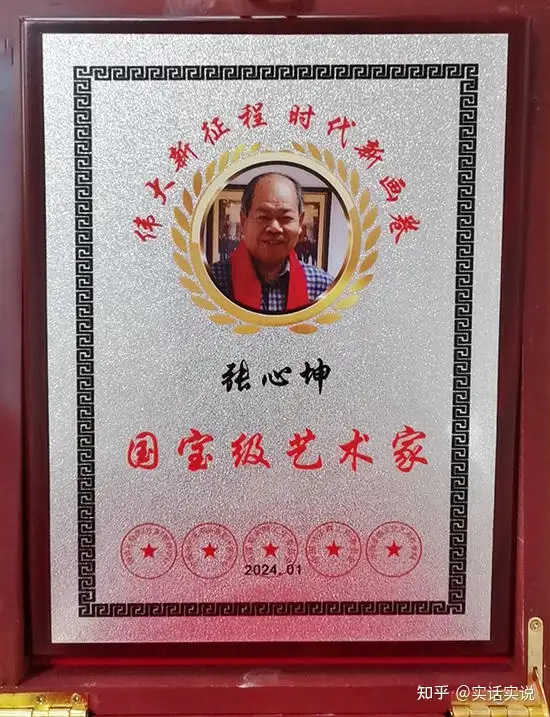 伟大新征程 时代新画卷
张心坤
国宝级艺术家
2024.01
知乎 @实话实说